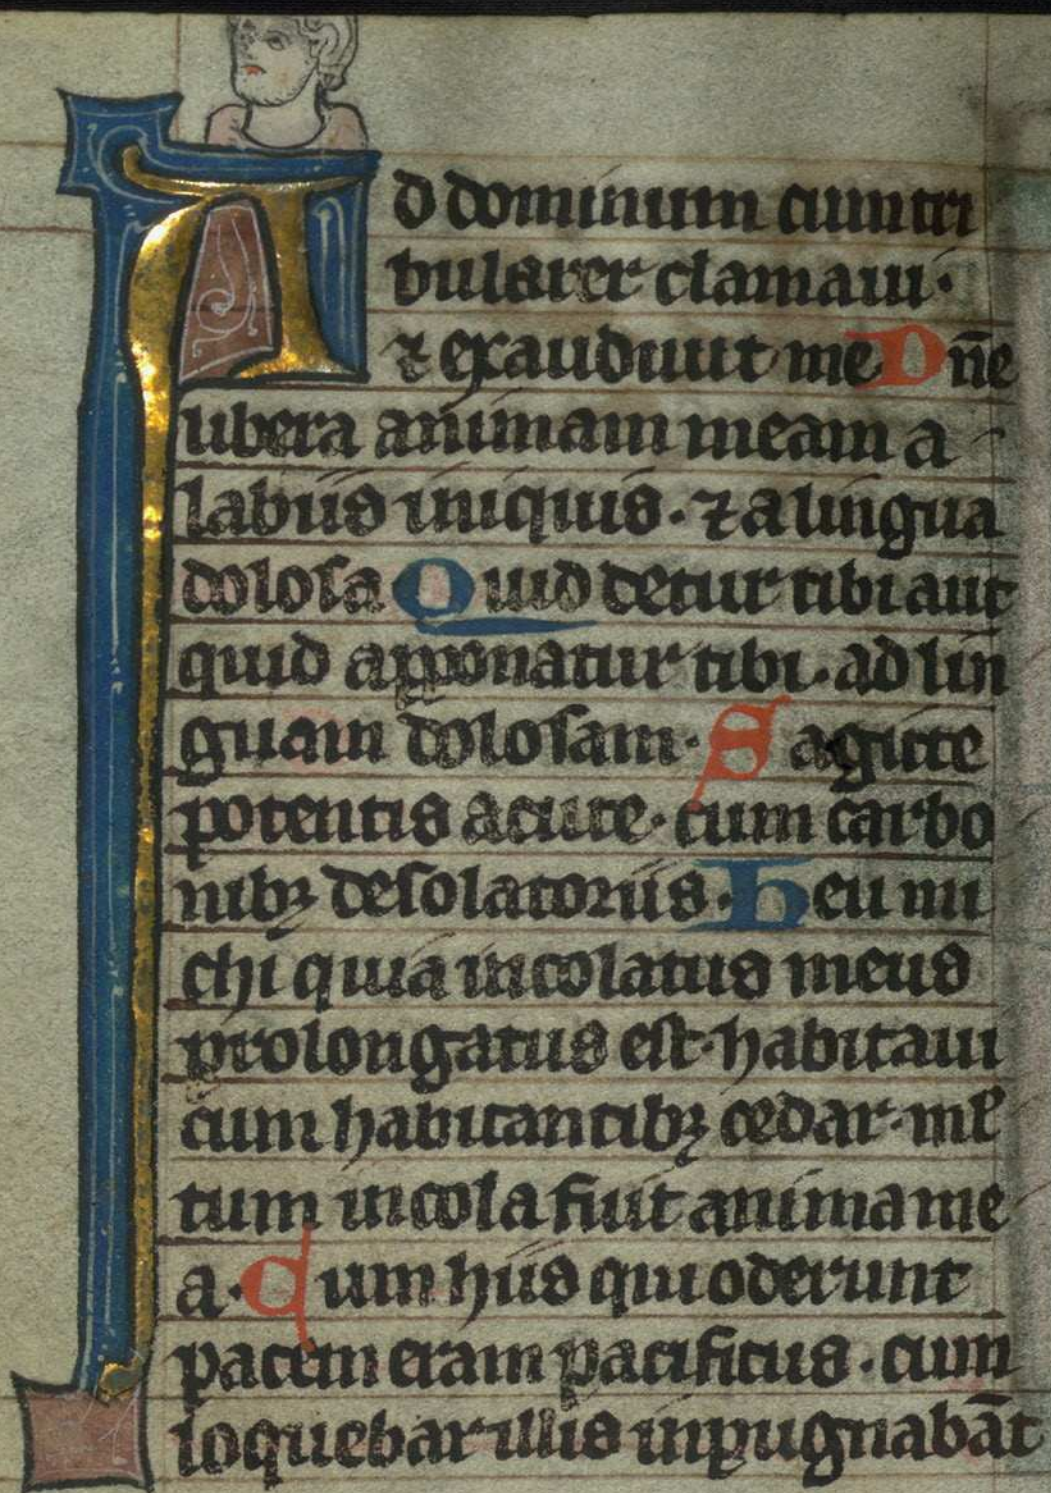 Ad dominum cum tri
bularer clamaui·
⁊ exaudiuit me Dn̄e
libera animam meam a
labiis iniquis· ⁊ a lingua
dolosa Quid detur tibi aut
quid apponatur tibi· ad lin
guam dolosam· Sagitte
potentis acute· cum carbo
nibꝫ desolatoriis· Heu mi
chi quia incolatus meus
prolongatus est· habitaui
cum habitantibꝫ cedar· ml̕
tum incola fuit anima me
a· Cum hiis qui oderunt
pacem eram pacificus· cum
loquebar illis inpugnabāt